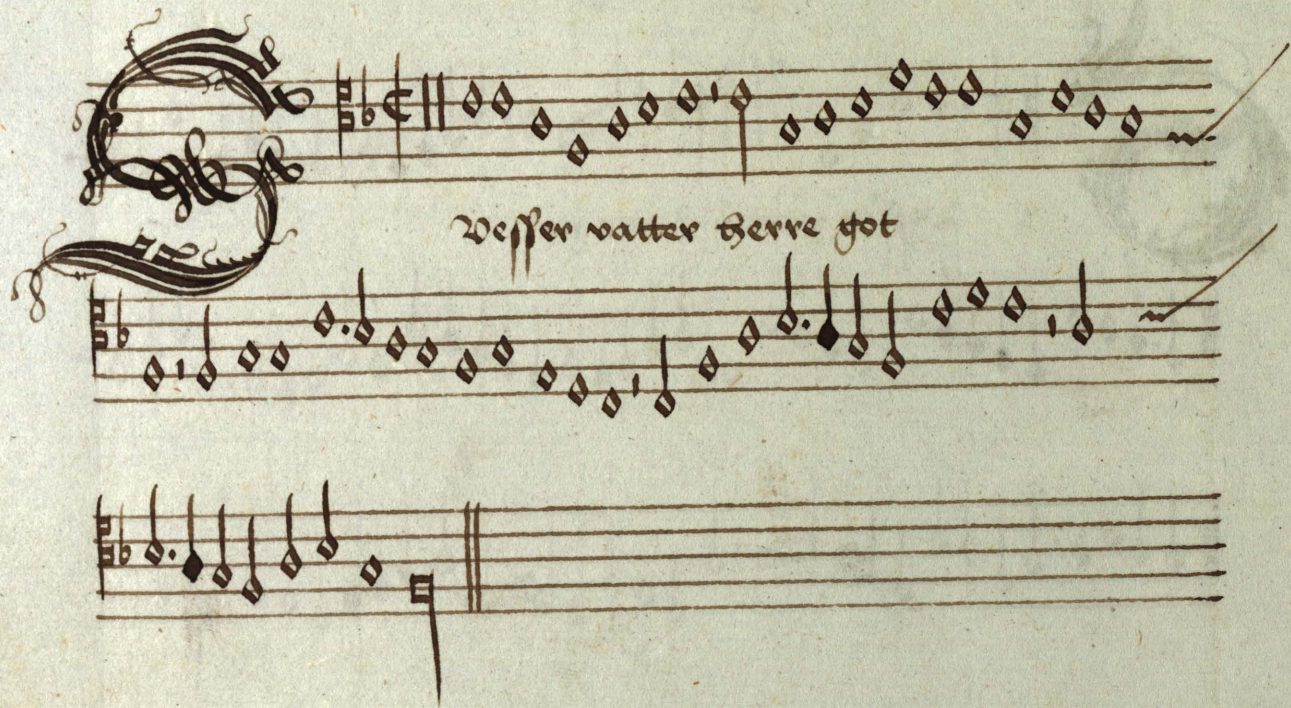 Svesser vatter herre got